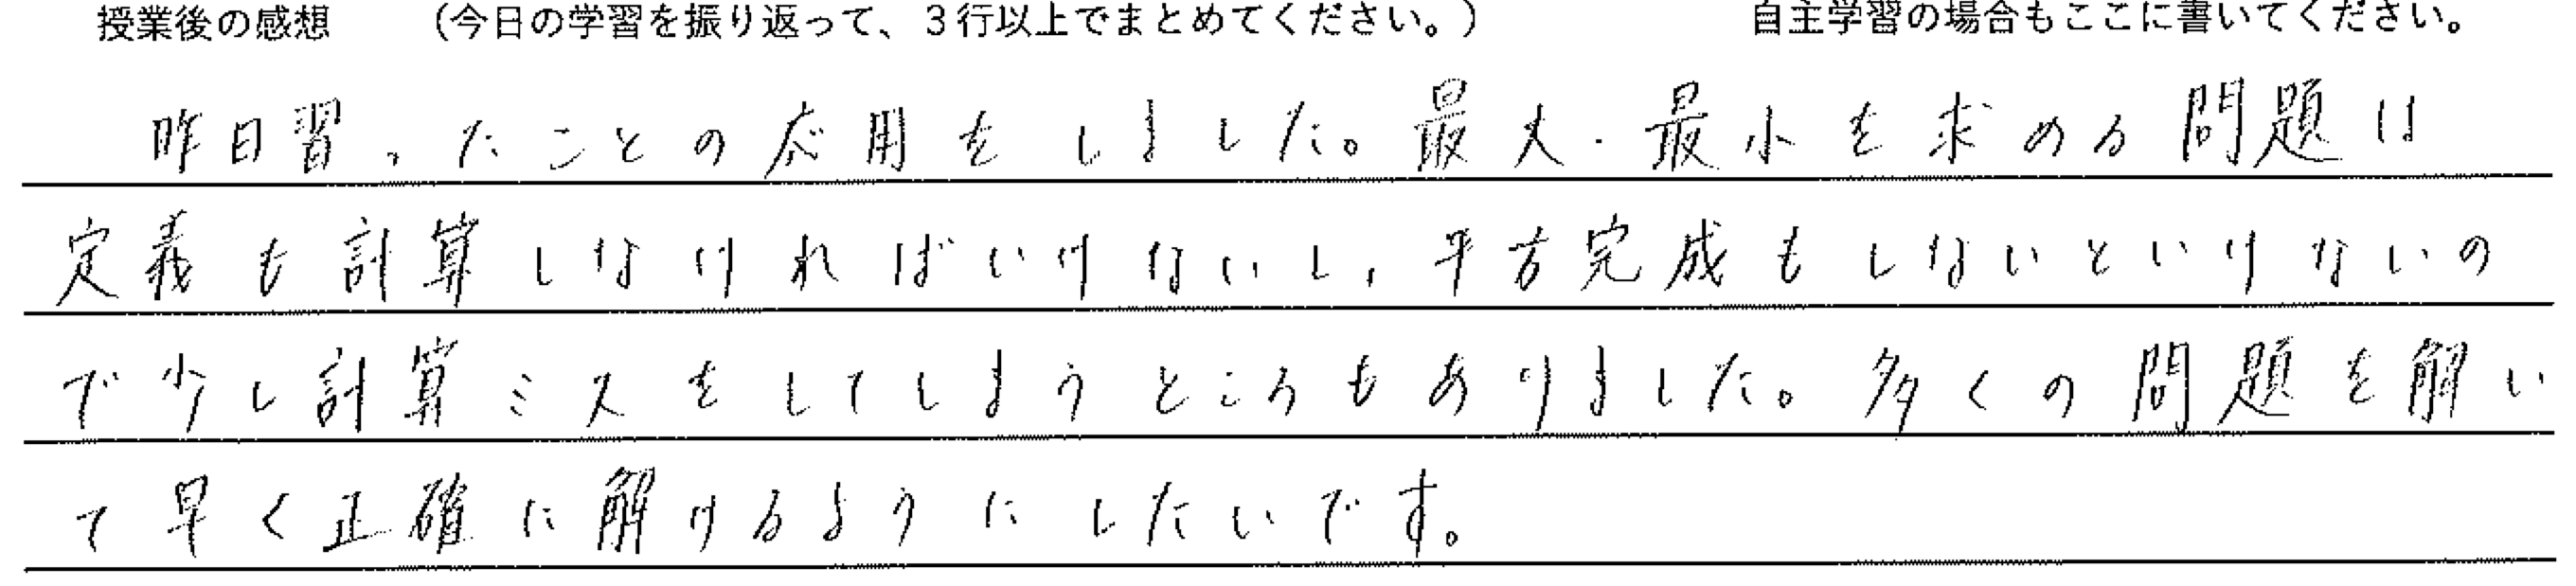 授業後の感想　（今日の学習を振り返って、３行以上でまとめてください。）　自主学習の場合もここに書いてください。
昨日習ったことの応用をしました。最大・最小を求める問題は
定義も計算しなければいけないし,平方完成もしないといけないの
で少し計算ミスをしてしまうところもありました。多くの問題を解い
て早く正確に解けるようにしたいです。